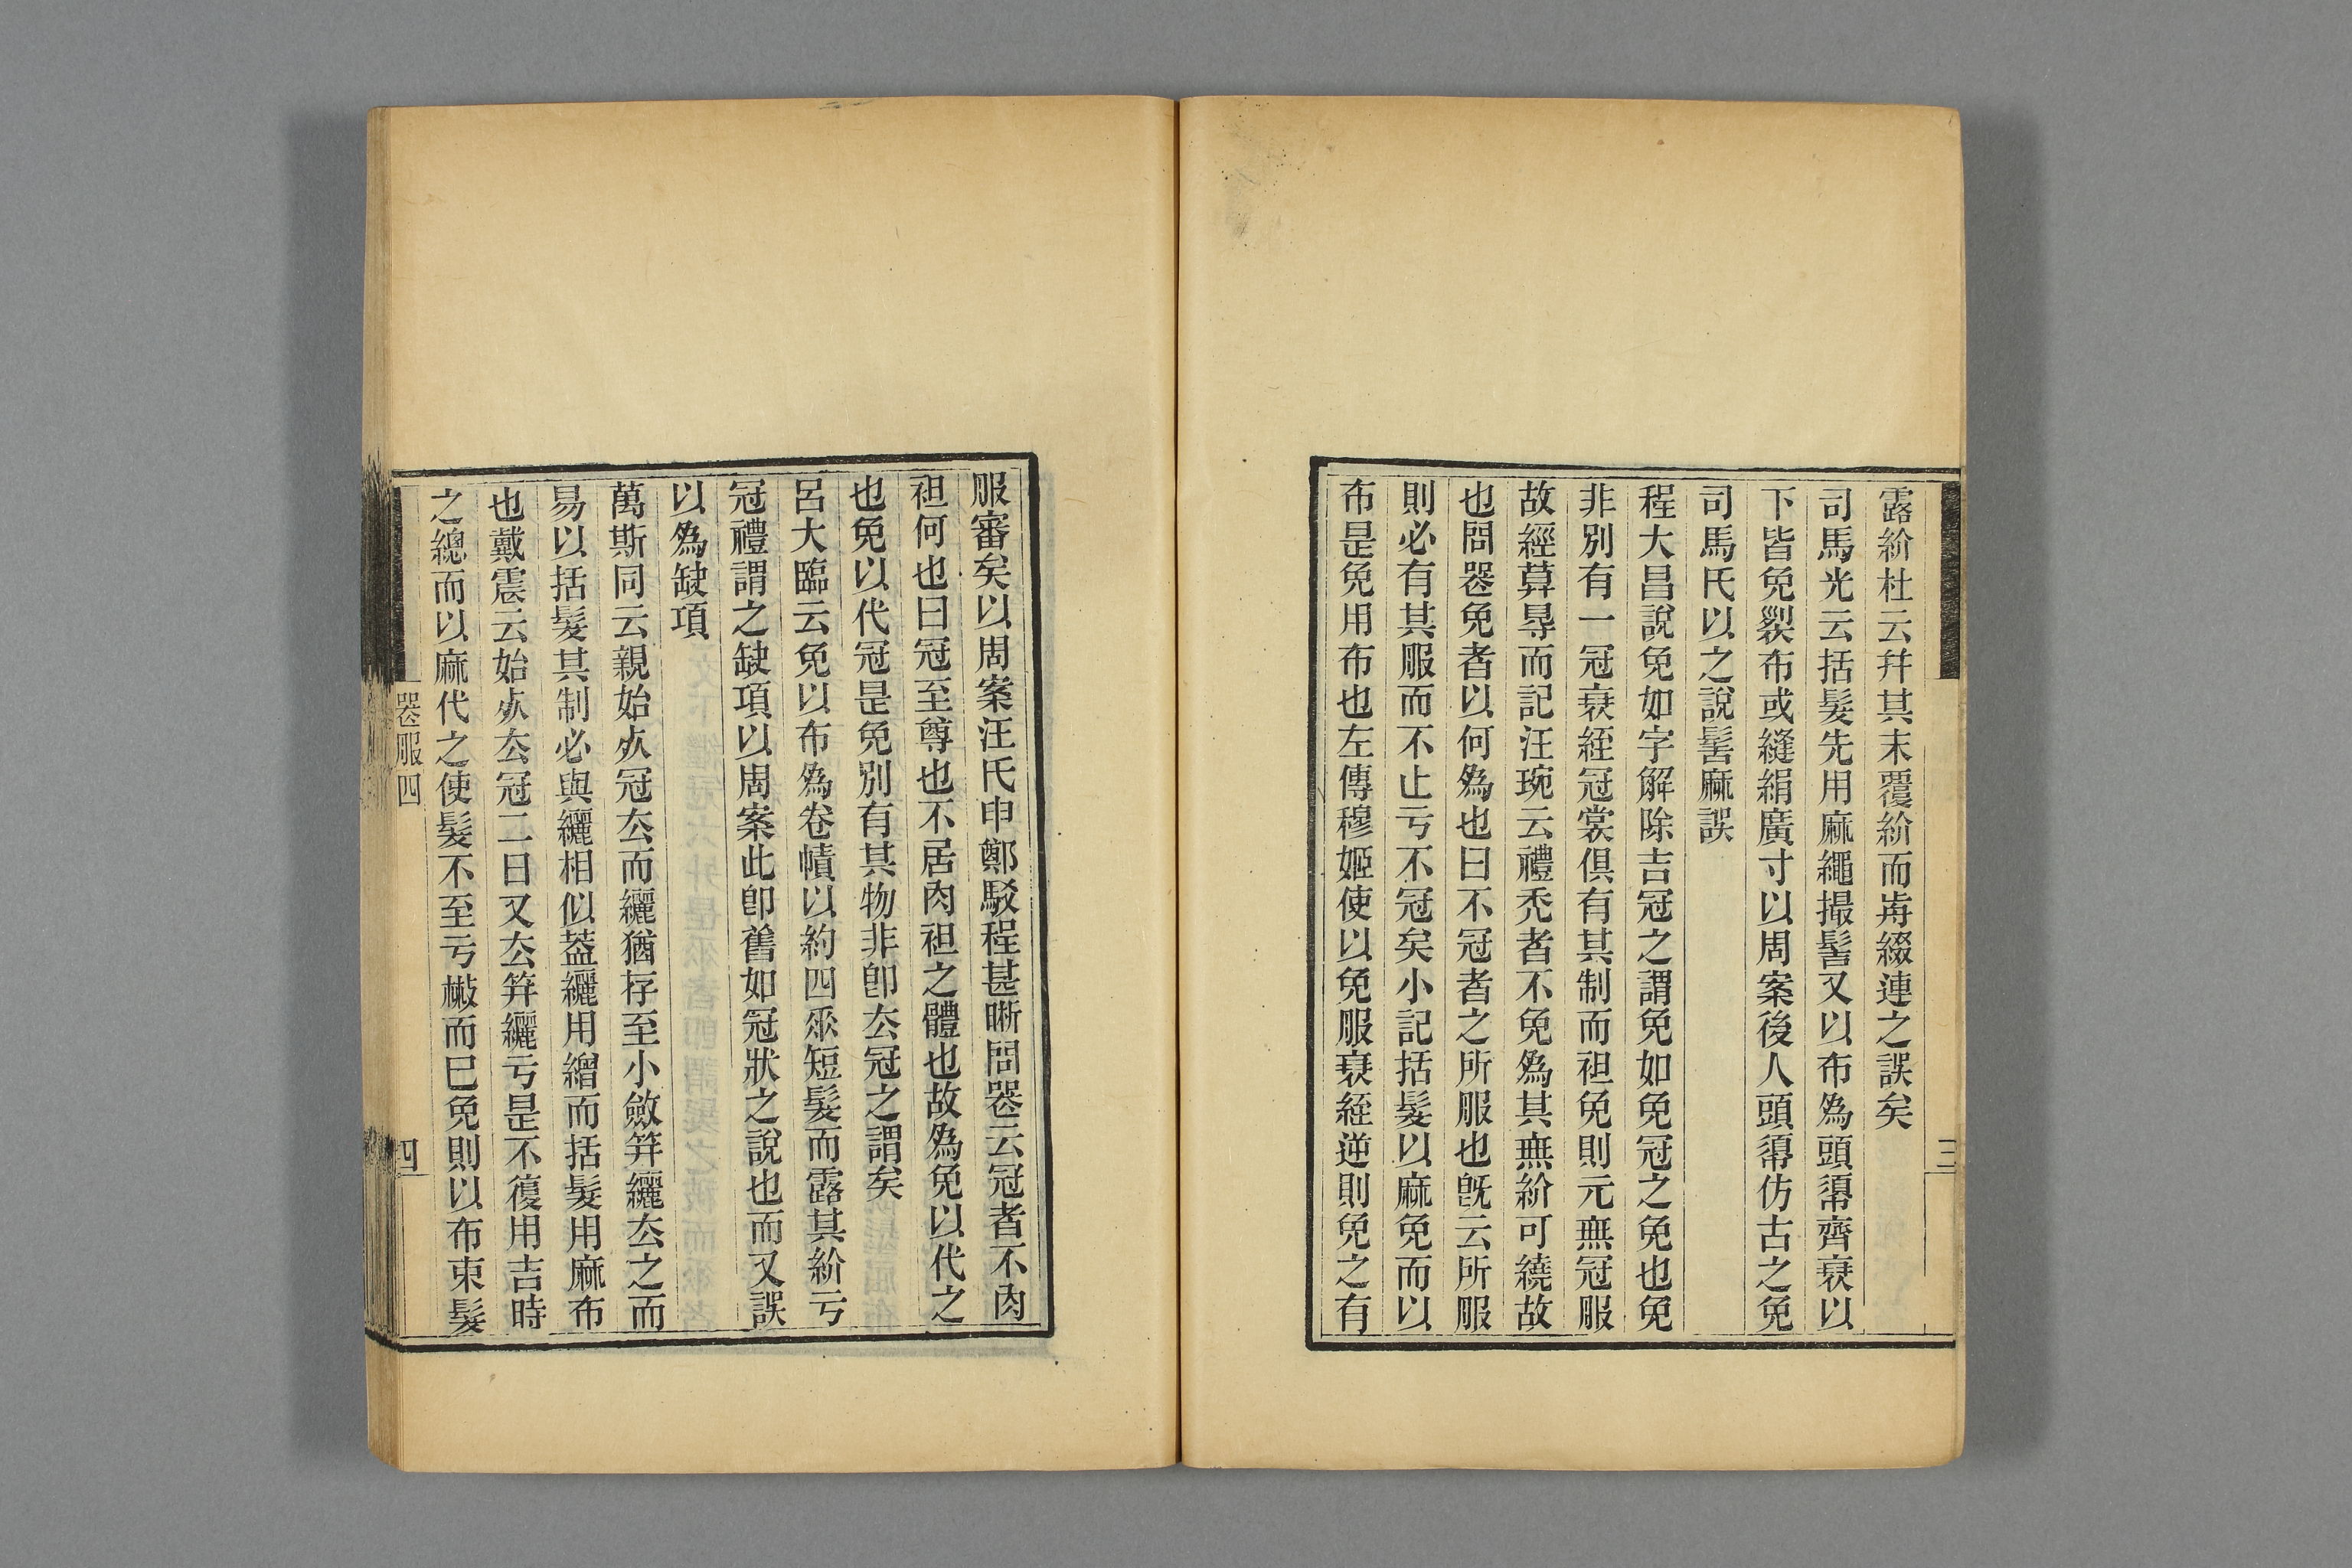 露紒杜云幷其末覆紒而歬綴連之誤矣
司馬光云括髮先用麻繩撮髻又以布爲頭𢄼齊衰以
下皆免裂布或縫絹廣寸以周案後人頭𢄼仿古之免
司馬氏以之說髻麻誤
程大昌說免如字解除吉冠之謂免如免冠之免也免
非別有一冠衰絰冠裳俱有其制而袒免則元無冠服
故經莫㝵而記汪琬云禮禿者不免爲其無紒可繞故
也問䘮免者以何爲也曰不冠者之所服也旣云所服
則必有其服而不止亏不冠矣小記括髮以麻免而以
布是免用布也左傳穆姬使以免服衰絰逆則免之有
三
服審矣以周案汪氏申鄭駁程甚晰問䘮云冠者不肉
袒何也曰冠至尊也不居肉袒之體也故爲免以代之
也免以代冠是免別有其物非卽厺冠之謂矣
呂大臨云免以布爲卷幘以約四𠂹短髮而露其紒亏
冠禮謂之缺項以周案此卽舊如冠狀之說也而又誤
以爲缺項
萬斯同云親始𣦸冠厺而纚猶存至小斂笄纚厺之而
易以括髮其制必與纚相似葢纚用繒而括髮用麻布
也戴震云始𣦸厺冠二日又厺笄纚亏是不復用吉時
之總而以麻代之使髮不至亏㪔而已免則以布束髮
䘮服四
四